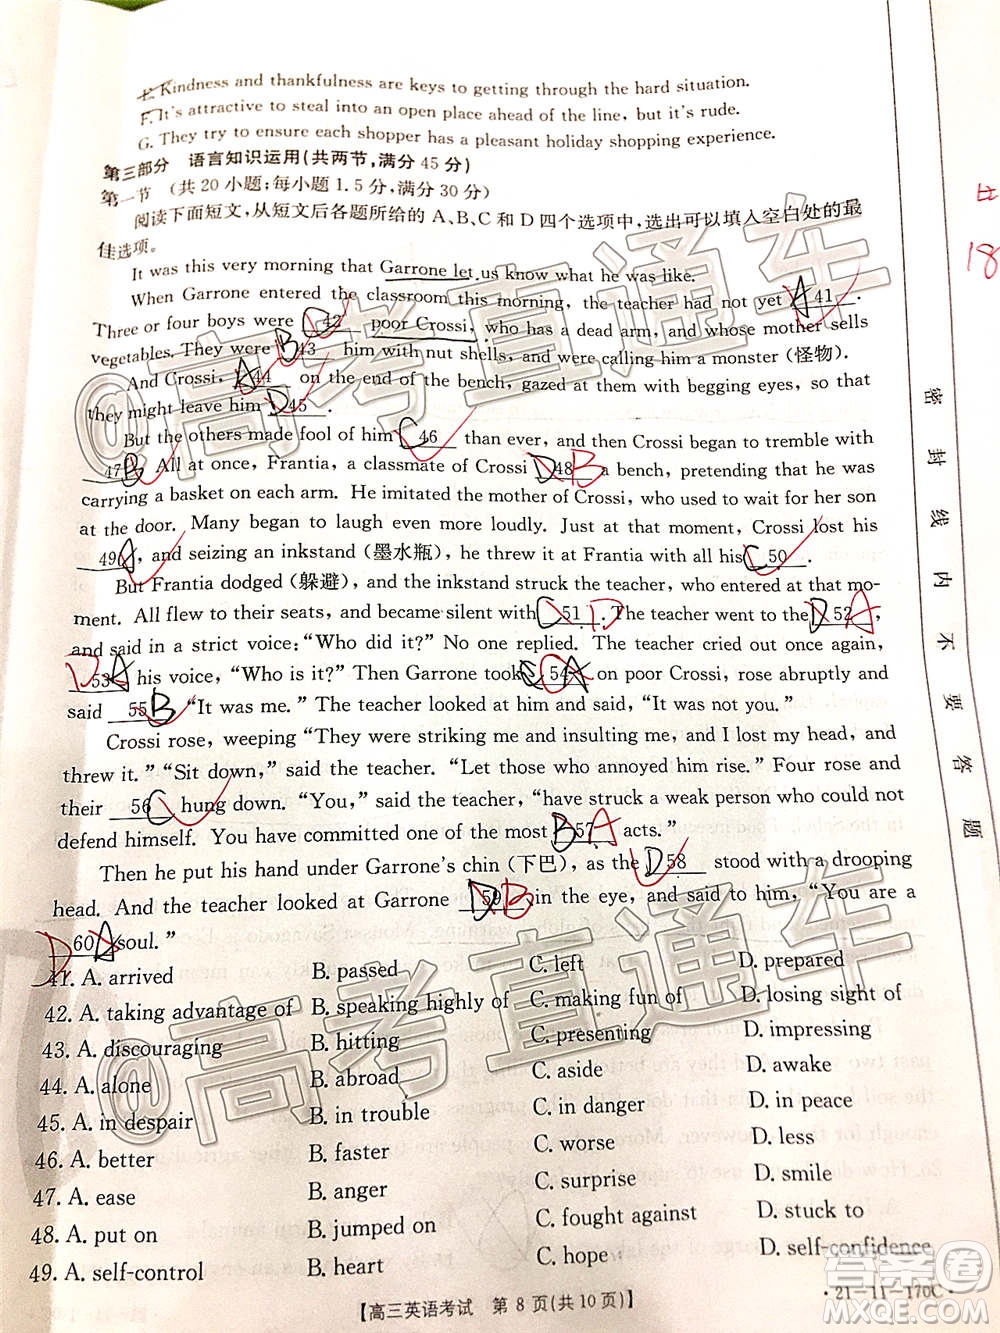 E. Kindness and thankfulness are keys to getting through the hard situation.
F. It's attractive to steal into an open place ahead of the line, but it's rude.
G. They try to ensure each shopper has a pleasant holiday shopping experience.
第三部分 语言知识运用(共两节,满分 45 分)
第一节 (共 20 小题;每小题 1.5 分,满分 30 分)
阅读下面短文,从短文后各题所给的 A、B、C 和 D 四个选项中,选出可以填入空白处的最
佳选项。
It was this very morning that Garrone let us know what he was like.
When Garrone entered the classroom this morning, the teacher had not yet A 41 .
Three or four boys were C 42 poor Crossi, who has a dead arm, and whose mother sells
vegetables. They were B 43 him with nut shells, and were calling him a monster (怪物).
And Crossi, A 44 on the end of the bench, gazed at them with begging eyes, so that
they might leave him D 45 .
But the others made fool of him C 46 than ever, and then Crossi began to tremble with
47 B. All at once, Frantia, a classmate of Crossi D 48 B a bench, pretending that he was
carrying a basket on each arm. He imitated the mother of Crossi, who used to wait for her son
at the door. Many began to laugh even more loudly. Just at that moment, Crossi lost his
49 A, and seizing an inkstand (墨水瓶), he threw it at Frantia with all his C 50 .
But Frantia dodged (躲避), and the inkstand struck the teacher, who entered at that mo-
ment. All flew to their seats, and became silent with C 51 D. The teacher went to the D 52 A,
and said in a strict voice: "Who did it?" No one replied. The teacher cried out once again,
D 53 A his voice, "Who is it?" Then Garrone took 54 A on poor Crossi, rose abruptly and
said 55 B "It was me." The teacher looked at him and said, "It was not you."
Crossi rose, weeping "They were striking me and insulting me, and I lost my head, and
threw it." "Sit down," said the teacher. "Let those who annoyed him rise." Four rose and
their 56 C hung down. "You," said the teacher, "have struck a weak person who could not
defend himself. You have committed one of the most B 57 A acts."
Then he put his hand under Garrone's chin (下巴), as the D 58 stood with a drooping
head. And the teacher looked at Garrone D 59 B in the eye, and said to him, "You are a
D 60 A soul."
41. A. arrived B. passed C. left D. prepared
42. A. taking advantage of B. speaking highly of C. making fun of D. losing sight of
43. A. discouraging B. hitting C. presenting D. impressing
44. A. alone B. abroad C. aside D. awake
45. A. in despair B. in trouble C. in danger D. in peace
46. A. better B. faster C. worse D. less
47. A. ease B. anger C. surprise D. smile
48. A. put on B. jumped on C. fought against D. stuck to
49. A. self-control B. heart C. hope D. self-confidence
【高三英语考试 第 8 页(共 10 页)】
·21-11-170C·
密封线内不要答题
18
@高考直通车
@高考直通车
答案圈
MXQE.COM